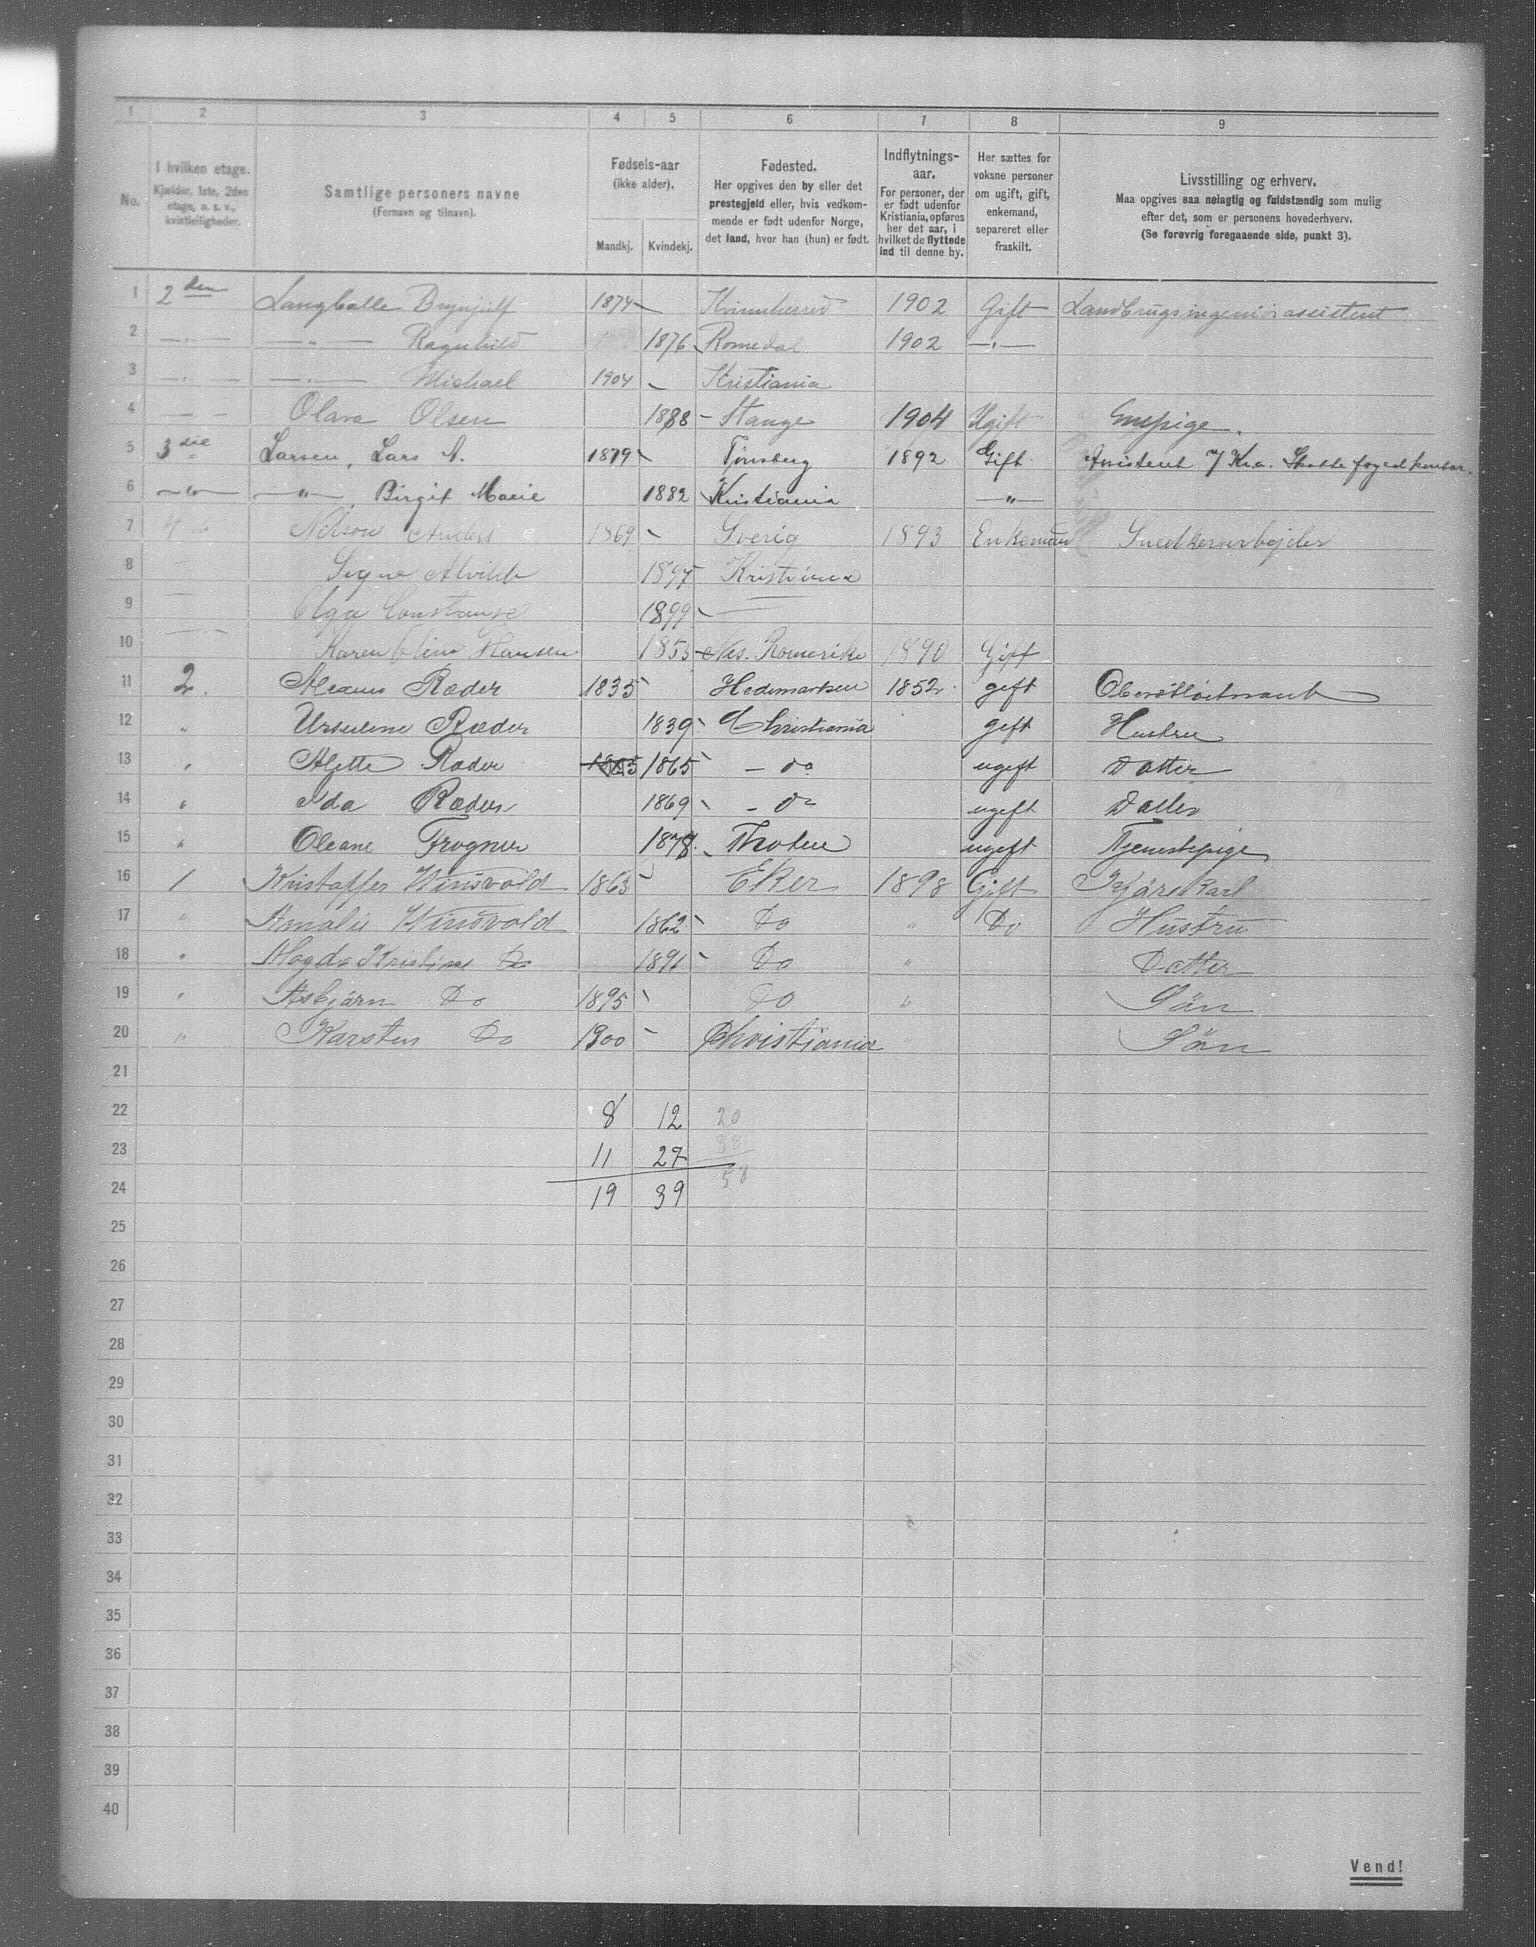 1 2 3 4 5 6 7 8 9
No.
I hvilken etage.
Kjælder, 1ste, 2den
etage, o. s. v.,
kvistleiligheder.
Samtlige personers navne
(Fornavn og tilnavn).
Fødsels-aar
(ikke alder).
Mandkj. Kvindekj.
Fødested.
Her opgives den by eller det
prestegjeld eller, hvis vedkom-
mende er født udenfor Norge,
det land, hvor han (hun) er født.
Indflytnings-
aar.
For personer, der
er født udenfor
Kristiania, opføres
her det aar, i
hvilket de flyttede
ind til denne by.
Her sættes for
voksne personer
om ugift, gift,
enkemand,
separeret eller
fraskilt.
Livsstilling og erhverv.
Maa opgives saa nøiagtig og fuldstændig som mulig
efter det, som er personens hovederhverv.
(Se forøvrig foregaaende side, punkt 3).
1 2den Langballe Brynjulf 1874 Kvinnherred 1902 Gift Landbrugsingeniørassistent
2 — " — — " — Ragnhild 1876 Romedal 1902 — " —
3 — " — — " — Michael 1904 Kristiania
4 — — Olava Olsen 1888 Stange 1904 Ugift Enepige.
5 3die Larsen, Lars A. 1879 Tønsberg 1892 Gift Assistent v/ Kra. Skattefogedkontor.
6 — " — — " — , Birgit Marie 1882 Kristiania — " —
7 4 Nilson Anders 1869 Sverig 1893 Enkemand Snedkerarbejder
8 — Signe Alvilde 1897 Kristiania
9 — Olga Constanse 1899 —
10 — Karen Oline Hansen 1853 Nes. Romerike 1890 Gift
11 2. Ræder 1835 Hedemarken 1852 gift Oberstløitnant
12 " Ursuline Ræder 1839 Christiania gift Hustru
13 " Alette Ræder 1865 1865 — do ugift Datter
14 " Ida Ræder 1869 — do ugift Datter
15 " Oleane Frogner 1878 Thoten ugift Tjenestepige
16 1 Kristoffer Winsvold 1863 Eker 1898 Gift Kjørekarl
17 " Amalie Winsvold 1862 Do " Do Hustru
18 " Magda Kristine Do 1891 Do " Datter
19 " Asbjørn Do 1895 Do " Søn
20 " Karsten Do 1900 Christiania " Søn
21
22 8 12 20
23 11 27 38
24 19 39 58
25
26
27
28
29
30
31
32
33
34
35
36
37
38
39
40
Vend!